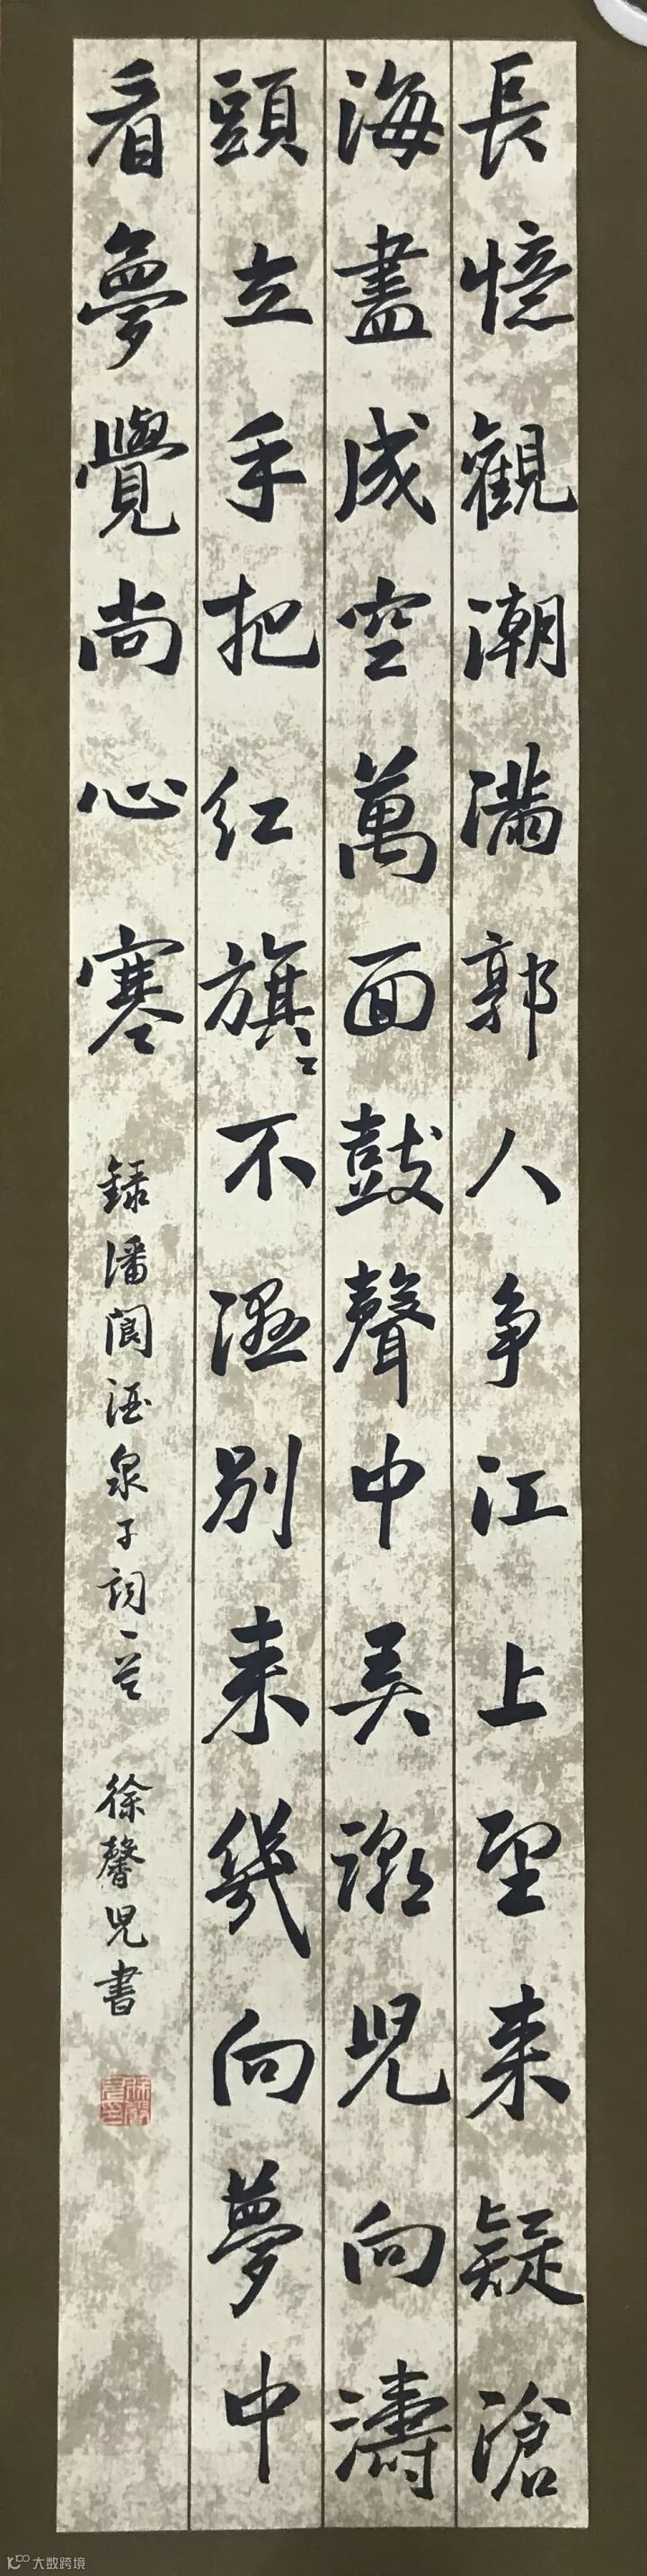 長憶觀潮满郭人争江上望来疑滄
海盡成空萬面鼓聲中弄潮兒向濤
頭立手把红旗〻不濕别来幾向夢中
看夢覺尚心寒 録潘閬酒泉子詞一首 徐馨児書
大数跨境